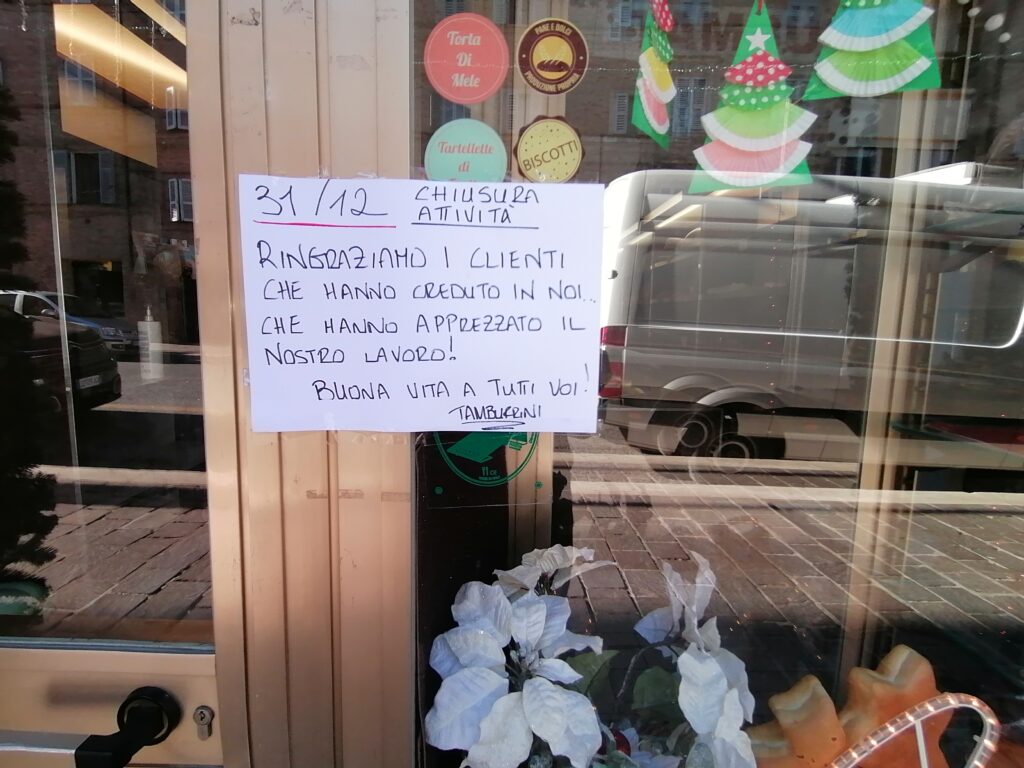 Torta
Di
Mele
PANE E DOLCI
PRODUZIONE PROPRIA
Tartellette
di
BISCOTTI
31/12 CHIUSURA
ATTIVITÀ
RINGRAZIAMO I CLIENTI
CHE HANNO CREDUTO IN NOI...
CHE HANNO APPREZZATO IL
NOSTRO LAVORO!
BUONA VITA A TUTTI VOI!
TAMBURRINI